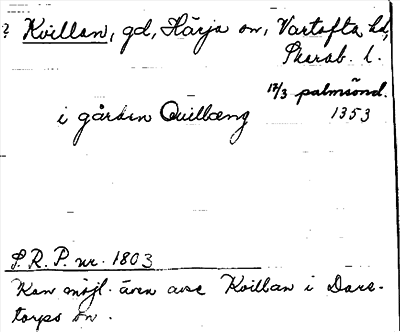 ? Kvillan, gd, Härja sn, Vartofta hd,
Skarab. l.
17/3 palmsönd.
i gården Quillæng 1353
S.R.P. nr. 1803
Kan möjl. även avse Kvillan i Dare-
torps sn.